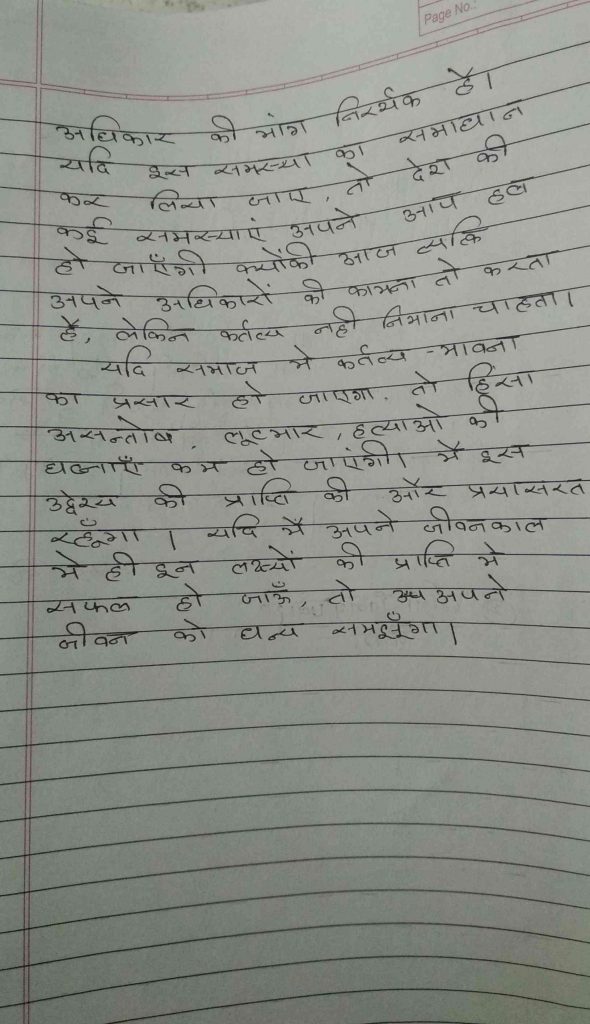 Page No.:
अधिकार की मांग निरर्थक है।
यदि इस समस्या का समाधान
कर लिया जाए, तो देश की
कई समस्याएं अपने आप हल
हो जाएँगी क्योंकी आज व्यक्ति
अपने अधिकारों की कामना तो करता
है, लेकिन कर्तव्य नही निभाना चाहता।
यदि समाज मे कर्तव्य-भावना
का प्रसार हो जाएगा, तो हिंसा
असन्तोष, लूटमार, हत्याओ की
घटनाएँ कम हो जाएंगी। मै इस
उद्देश्य की प्राप्ति की और प्रयासरत
रहूँगा। यदि मैं अपने जीवनकाल
मे ही इन लक्ष्यों की प्राप्ति मे
सफल हो जाऊँ, तो अपने
जीवन को धन्य समझूँगा।